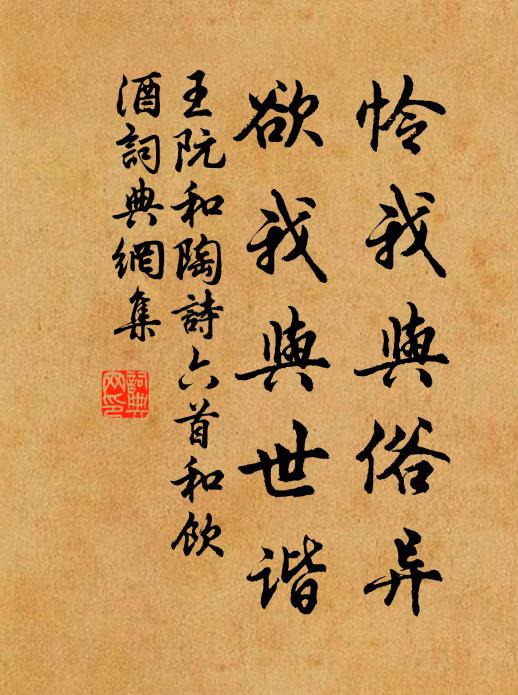 怜我與俗异
欲我與世谐
王阮和陶詩六首和飲
酒詞典網集
詞典網印